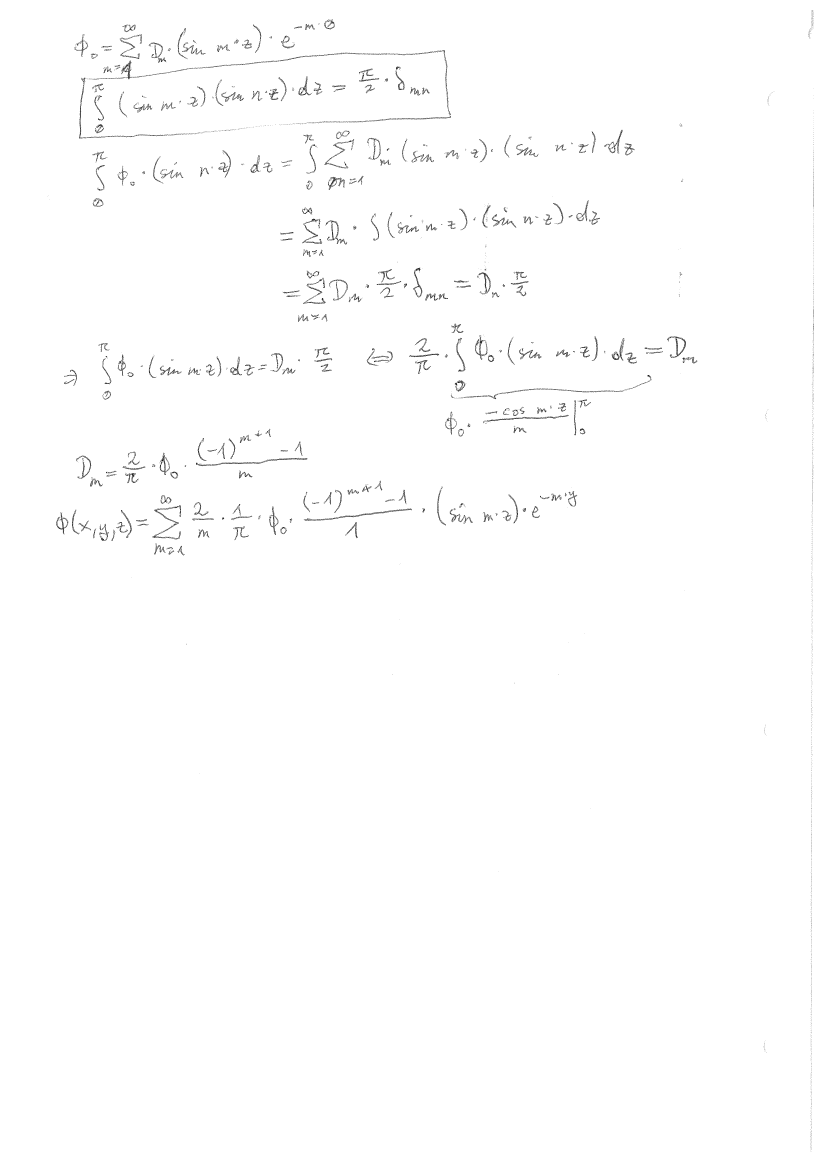 ϕ₀ = ∑_{m=1}^{∞} D_m · (sin m·z) · e^{-m·0}
∫_0^π (sin m·z)·(sin n·z)·dz = π/2 · δ_{mn}
∫_0^π ϕ₀·(sin n·z)·dz = ∫_0^π ∑_{m=1}^{∞} D_m·(sin m·z)·(sin n·z)·dz
= ∑_{m=1}^{∞} D_m · ∫(sin m·z)·(sin n·z)·dz
= ∑_{m=1}^{∞} D_m · π/2 · δ_{mn} = D_n · π/2
⇒ ∫_0^π ϕ₀·(sin m·z)·dz = D_m · π/2 ⇔ 2/π · ∫_0^π ϕ₀·(sin m·z)·dz = D_m
ϕ₀ · (-cos m·z)/m |_0^π
D_m = 2/π · ϕ₀ · ((-1)^{m+1} - 1)/m
ϕ(x,y,z) = ∑_{m=1}^{∞} 2/m · 1/π · ϕ₀ · ((-1)^{m+1} - 1)/1 · (sin m·z)·e^{-m·y}